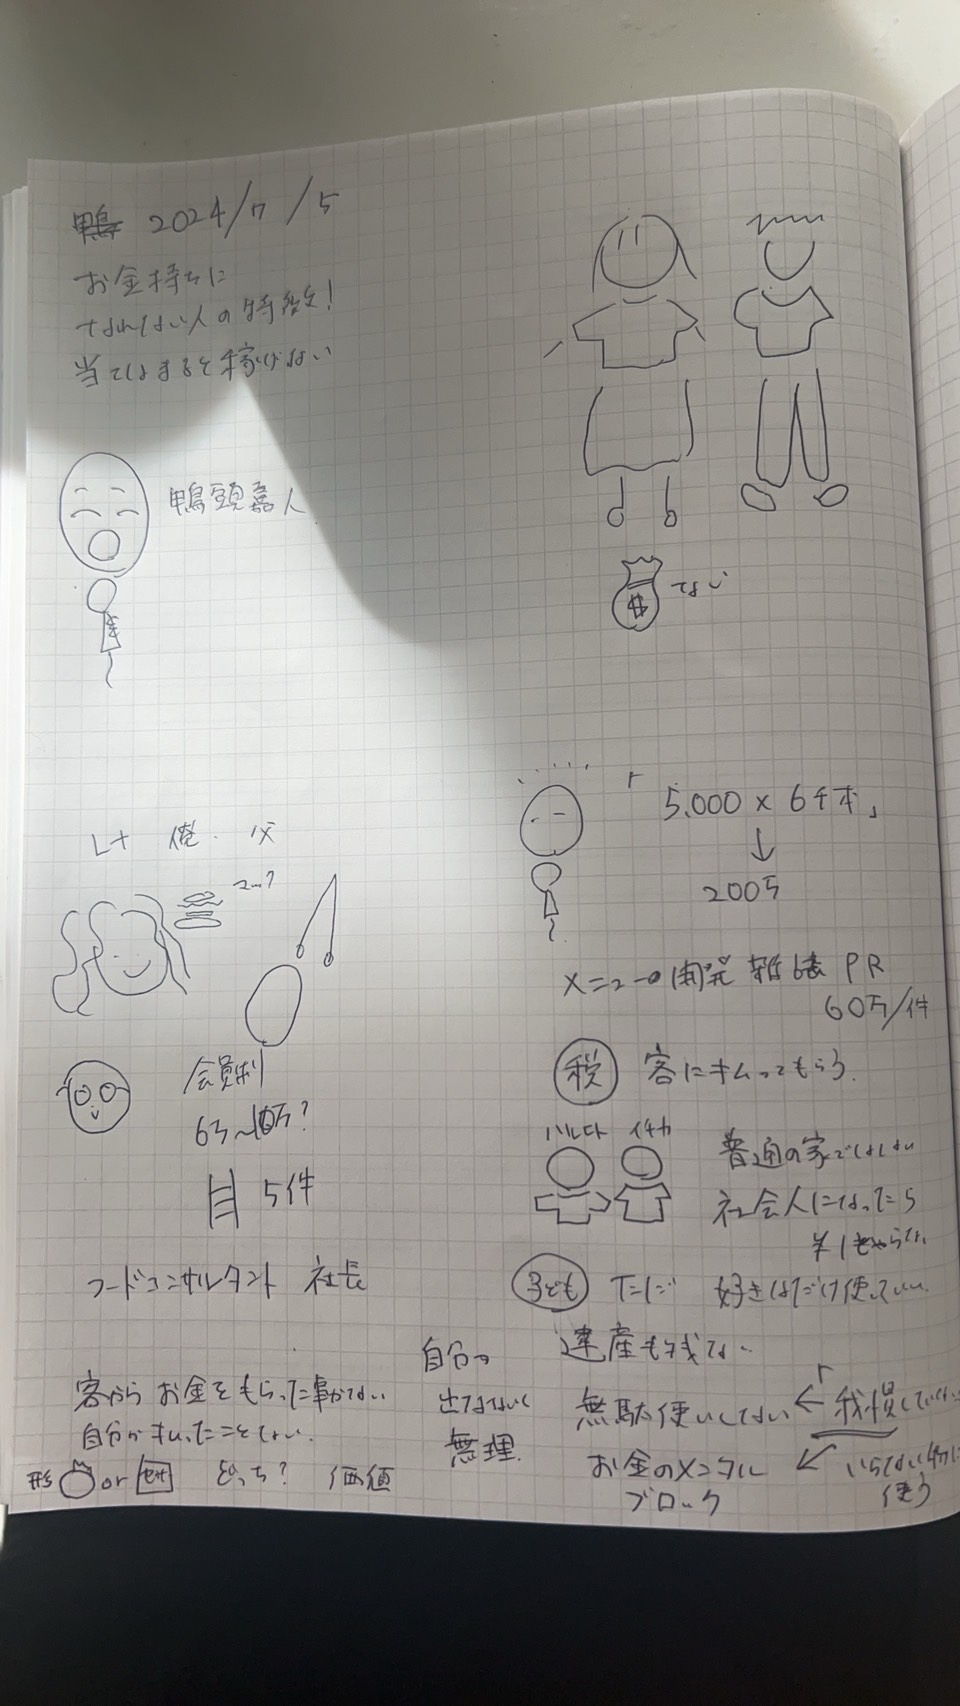 鴨 2024/7/5
お金持ちに
なれない人の特徴!
当てはまると稼げない
鴨頭嘉人
$ ない
俺 父
「5.000 × 6千本」
↓
200万
メニュー開発 雑誌 PR
60万/件
税 客に払ってもらう.
会員制
6万~10万?
5件
ハルヒト イチカ
普通の家ではない
社会人になったら
¥1もやらない
フードコンサルタント 社長
子ども ただ 好きなだけ使っていい.
遺産も残さない
客からお金をもらった事がない
自分が払ったことない.
形 or どっち? 価値
自分の
出さないと
無理.
無駄使いしてない ←「我慢して
お金のメンタル ← いらない物に
ブロック 使う